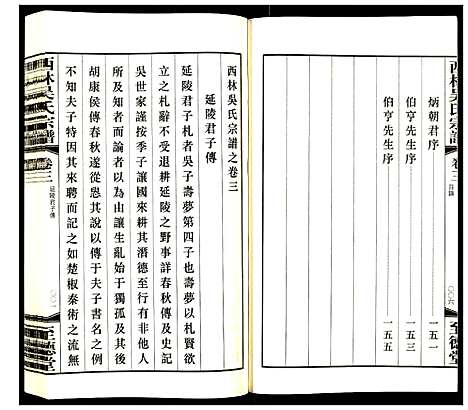 西林吳氏宗譜 卷三 目錄 〇〇六 至德堂
炳朝君序 一五一
伯亨先生序 一五五
伯亨先生序 一五五
西林吳氏宗譜之卷三
延陵君子傳
延陵君子札者吳子壽夢第四子也壽夢以札賢欲
立之札辭不受退耕延陵之野事詳春秋傳及史記
吳世家謹按季子讓國來耕其潛德至行有非他人
所及知者而論者以由讓生亂始于獨孤及其後
胡康侯傳春秋遂從惥其說以傳于夫子書名之例
不知夫子特因其來聘而記之如楚椒秦術之流無
西林吳氏宗譜 卷三 延陵君子傳 〇〇一 至德堂